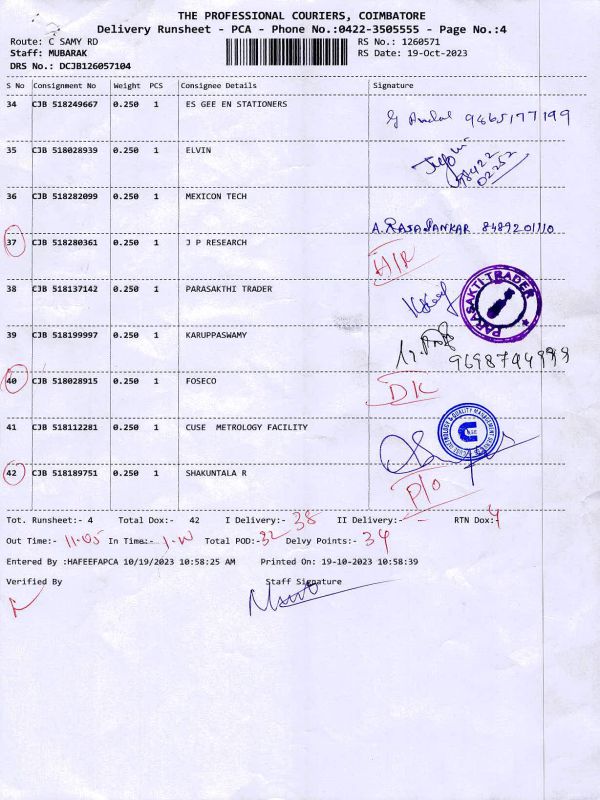 THE PROFESSIONAL COURIERS, COIMBATORE
Delivery Runsheet - PCA - Phone No.:0422-3505555 - Page No.:4
Route: C SAMY RD RS No.: 1260571
Staff: MUBARAK RS Date: 19-Oct-2023
DRS No.: DCJB126057104
S No Consignment No Weight PCS Consignee Details Signature
34 CJB 518249667 0.250 1 ES GEE EN STATIONERS
9865177199
35 CJB 518028939 0.250 1 ELVIN
98422
02252
36 CJB 518282099 0.250 1 MEXICON TECH
A. RAJASANKAR 8489201110
37 CJB 518280361 0.250 1 J P RESEARCH
H/R
38 CJB 518137142 0.250 1 PARASAKTHI TRADER
PARASAKTI TRADER
39 CJB 518199997 0.250 1 KARUPPASWAMY
40 CJB 518028915 0.250 1 FOSECO
DK
41 CJB 518112281 0.250 1 CUSE METROLOGY FACILITY
42 CJB 518189751 0.250 1 SHAKUNTALA R
P/O
Tot. Runsheet:- 4 Total Dox:- 42 I Delivery:- 38 II Delivery:- - RTN Dox:- 4
Out Time:- 11.05 In Time:- Total POD:- 32 Delvy Points:- 34
Entered By :HAFEEFAPCA 10/19/2023 10:58:25 AM Printed On: 19-10-2023 10:58:39
Verified By Staff Signature